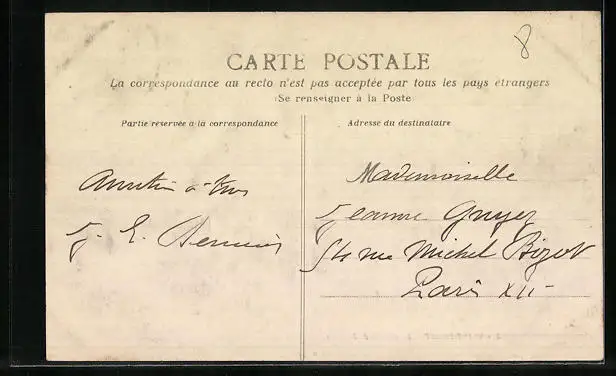 8
CARTE POSTALE
La correspondance au recto n'est pas acceptée par tous les pays étrangers
(Se renseigner à la Poste
Partie réservée à la correspondance
Adresse du destinataire
à
E.
Mademoiselle
Jeanne
54 rue Michel Bizot
Paris XII